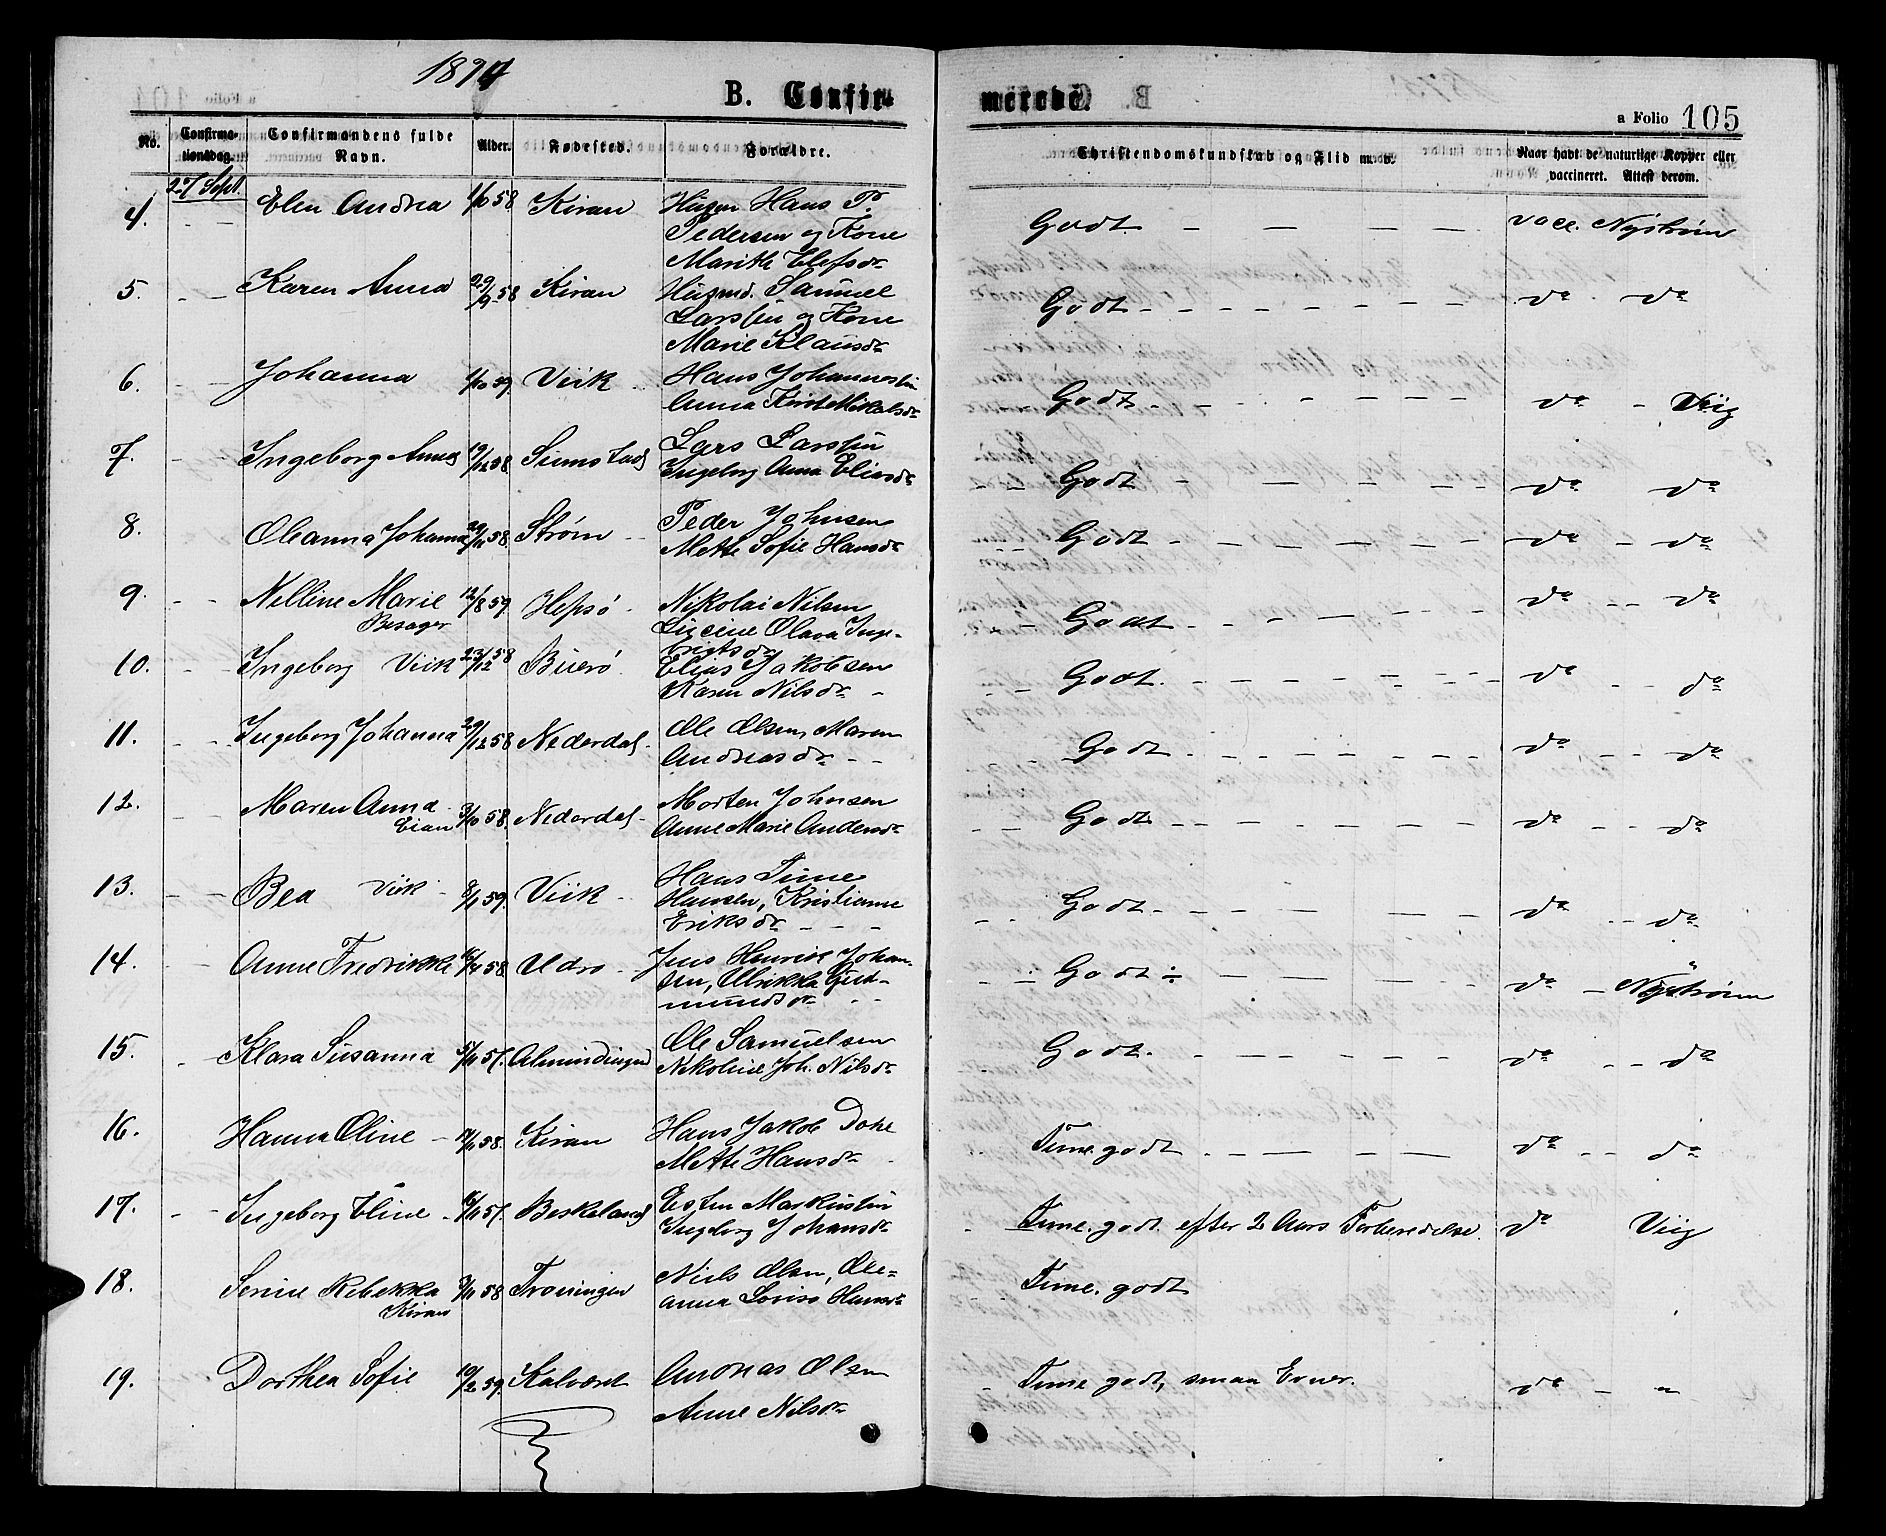 1874
B. Confir-
merede.
a Folio 105
No.
Confirma-
tionsdag.
Confirmandens fulde
Navn.
Alder.
Fødested.
Forældre.
Christendomskundskab og Flid m. v.
Naar havt de naturlige Kopper eller
vaccineret. Attest derom.
27 Sept.
4. Elen Andrea 1/10 58 Kiran Husm Hans P.
Pedersen og Kone
Marith Elefsdr
Godt - - - - vacc. Nystrøm
5. - - Karen Anna 29/9 58 Kiran Husmd. Samuel
Larsen og Kone
Marie Klausdr
Godt - - - - - - - do do
6. - - Johanna 1/10 59. Viik Hans Johannesen
Anna Kirst. Mikalsdr
Godt - - - - - - - do - Viig
7. - Ingeborg Anna 19/12 58. Sumstad Lars Larsen
Ingeborg Anna Eliasdr
- Godt - - - - - - do do
8. Oleanna Johanna 29/11 58. Strøm - Peder Johnsen
Mette Sofie Hansdr
Godt - - - - - - do - do
9. - - Nelline Marie 12/8 59. Hepsø - Nikolai Nilsen
Besager
Olava Inge-
brigtsdr
- Godt - - - - - - do - - do
10. - - Ingeborg Viik 23/12 58 Buerø Elias Jakobsen
Karen Nilsdr -
- - Godt. - - - - - - do - - do
11. - - Ingeborg Johanna 29/12 58 Nederdal - Ole Olsen, Maren
Andreasdr - -
Godt - - - - - do - - do
12. - Maren Anna 3/10 58. Nederdal - Morten Johnsen
Eian
Anne Marie Andersdr
- - Godt - - - - - - do - - do
13. - - Bea Viik - 8/1 59. Viik - Hans Time
Hansen, Kristianne
Eriksdr - - -
- - Godt - - - - - - do - - do
14. - Anne Fredrikke 16/4 58 Udro - Jens Henrik Johan-
sen, Ulrikka Gud-
mundsdr - -
- - Godt - - - do - Nystrøm
15. - Klara Susanna 5/11 57. Almindingen Ole Samuelsen
Nikoline Joh. Nilsdr
Godt. - - - - - do - - do
16. Hanna Oline - 14/11 58. Kiran Hans Jakob Dohl
Mette Hansdr -
Time. godt - - - - - do - - do
17. - - Ingeborg Eline - 16/11 57. Beskeland Esten Markussen
Ingeborg Johansdr
- Time. godt efter 2 Aars Forberedelse. do Viig
18. Serine Rebekka 3/11 58 Troningen Niels Olsen, Ole-
Kiran
anna Lovise Hansdr
Time. godt
19. Dorthea Sofie 10/2 59. Kalvøret Andreas Olsen
Anne Nilsdr
- Time godt, smaa Evner. do - "